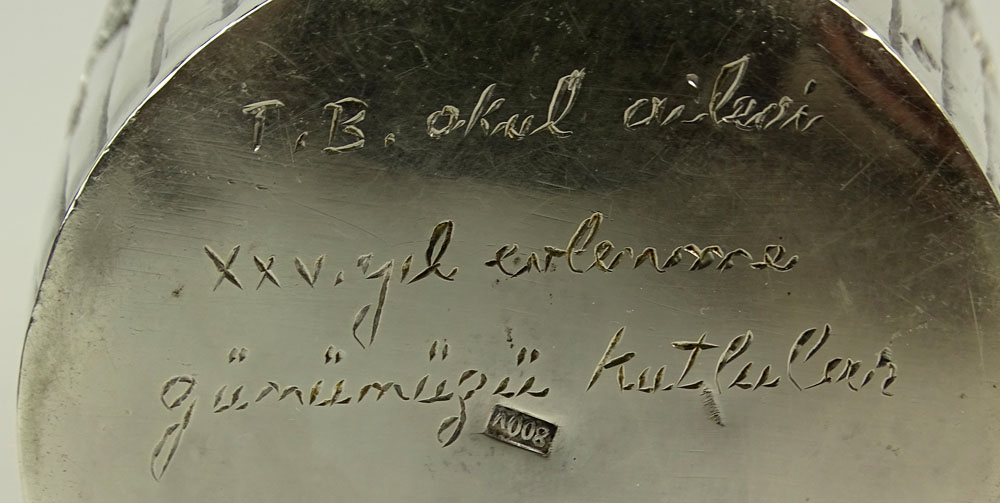 T.B. okul ailesi
xxv.yıl evlenme
günümüzü kutlular
800V